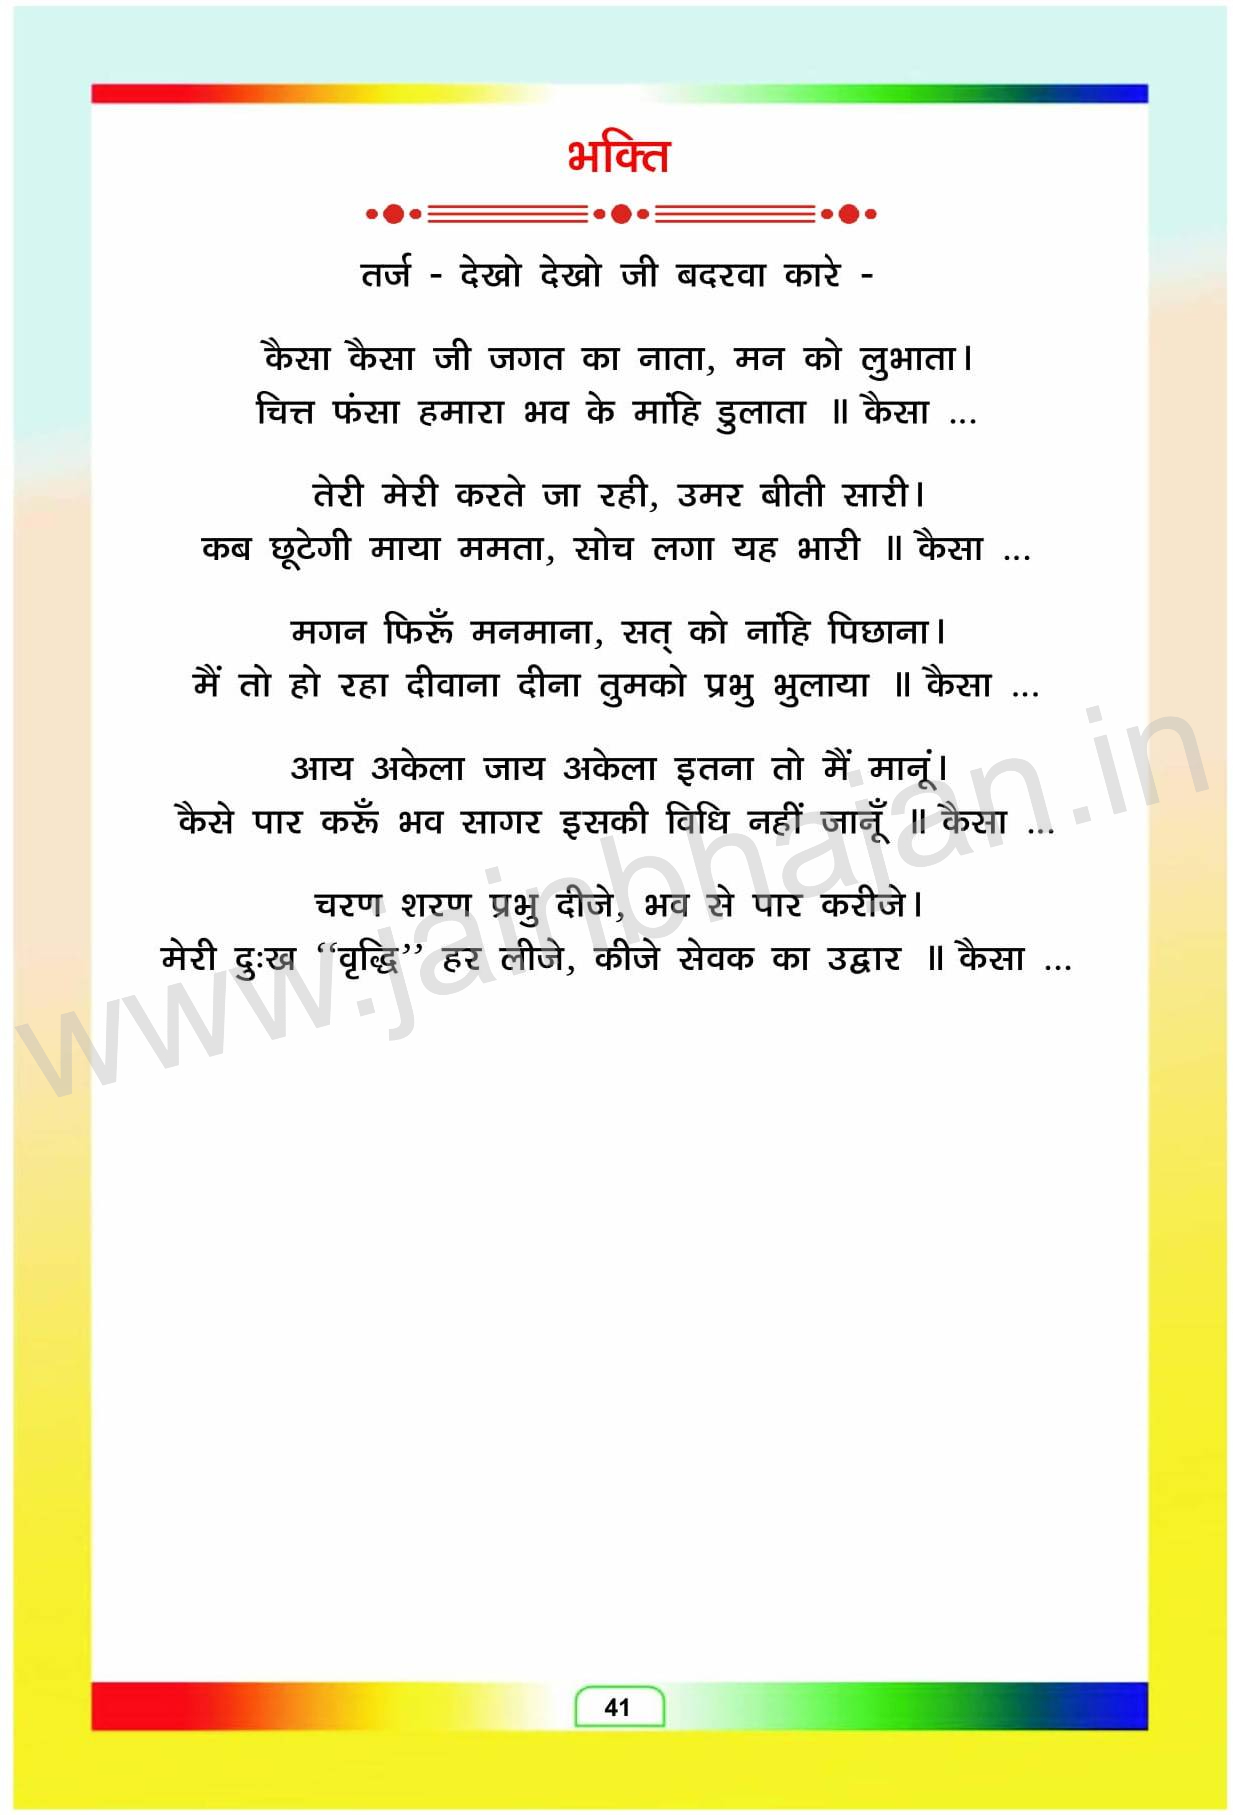 भक्ति
तर्ज - देखो देखो जी बदरवा कारे -
कैसा कैसा जी जगत का नाता, मन को लुभाता।
चित्त फंसा हमारा भव के मांहि डुलाता ॥ कैसा ...
तेरी मेरी करते जा रही, उमर बीती सारी।
कब छूटेगी माया ममता, सोच लगा यह भारी ॥ कैसा ...
मगन फिरूँ मनमाना, सत् को नांहि पिछाना।
मैं तो हो रहा दीवाना दीना तुमको प्रभु भुलाया ॥ कैसा ...
आय अकेला जाय अकेला इतना तो मैं मानूं।
कैसे पार करूँ भव सागर इसकी विधि नहीं जानूँ ॥ कैसा ...
चरण शरण प्रभु दीजे, भव से पार करीजे।
मेरी दुःख “वृद्धि” हर लीजे, कीजे सेवक का उद्वार ॥ कैसा ...
www.jainbhajan.in
41